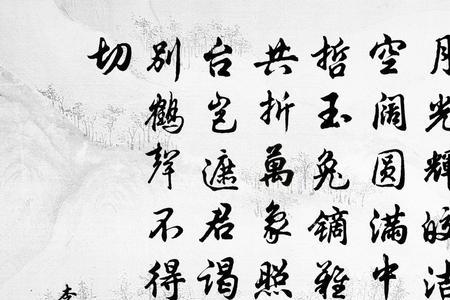 月光輝皎洁
空阔圆满中
哲玉兔镝難
共折萬象照
台岂遮君谒
别鶴聲不得
切
李